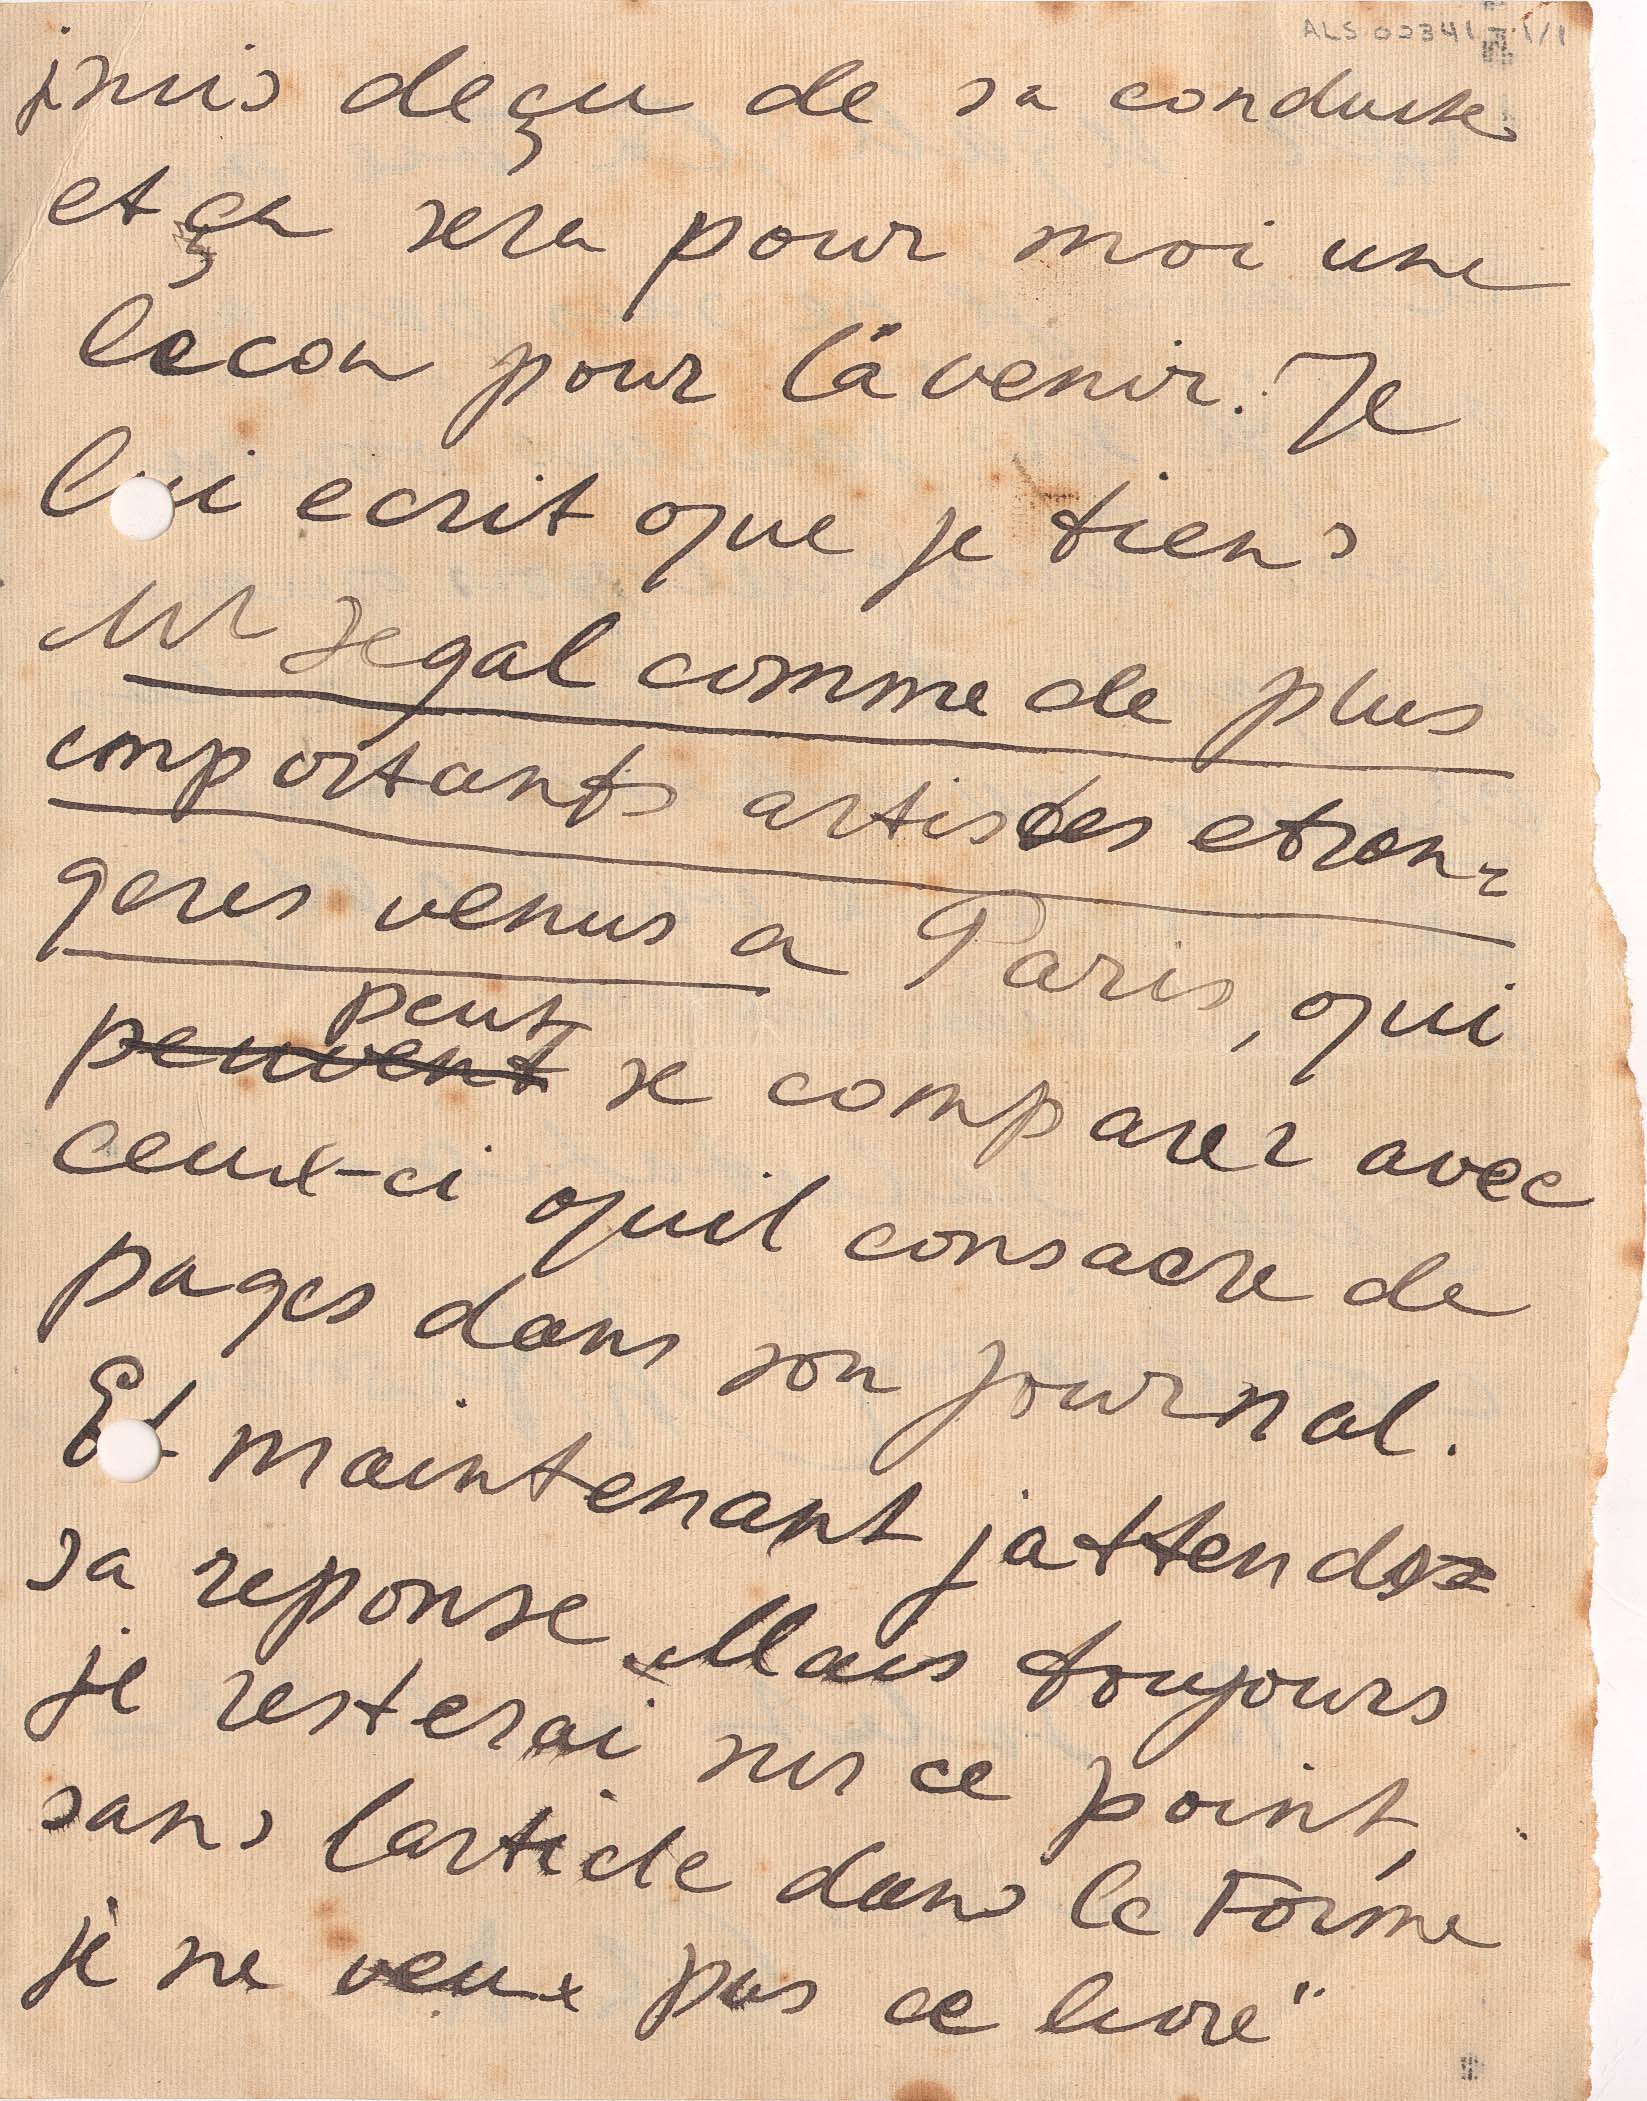 ALS 00341 1/1
jsuis deçu de sa conduite
et ça sera pour moi une
lecon pour l'avenir. Je
lui ecrit que je tiens
Mr Segal comme de plus
importants artistes etran-
geres venus a Paris, qui
peut
peuvent se comparer avec
ceux-ci quil consacre de
pages dans son journal.
Et maintenant j'attends
sa reponse. Mais toujours
je resterai sur ce point,
sans larticle dans le Forme
je ne veux pas ce livre"